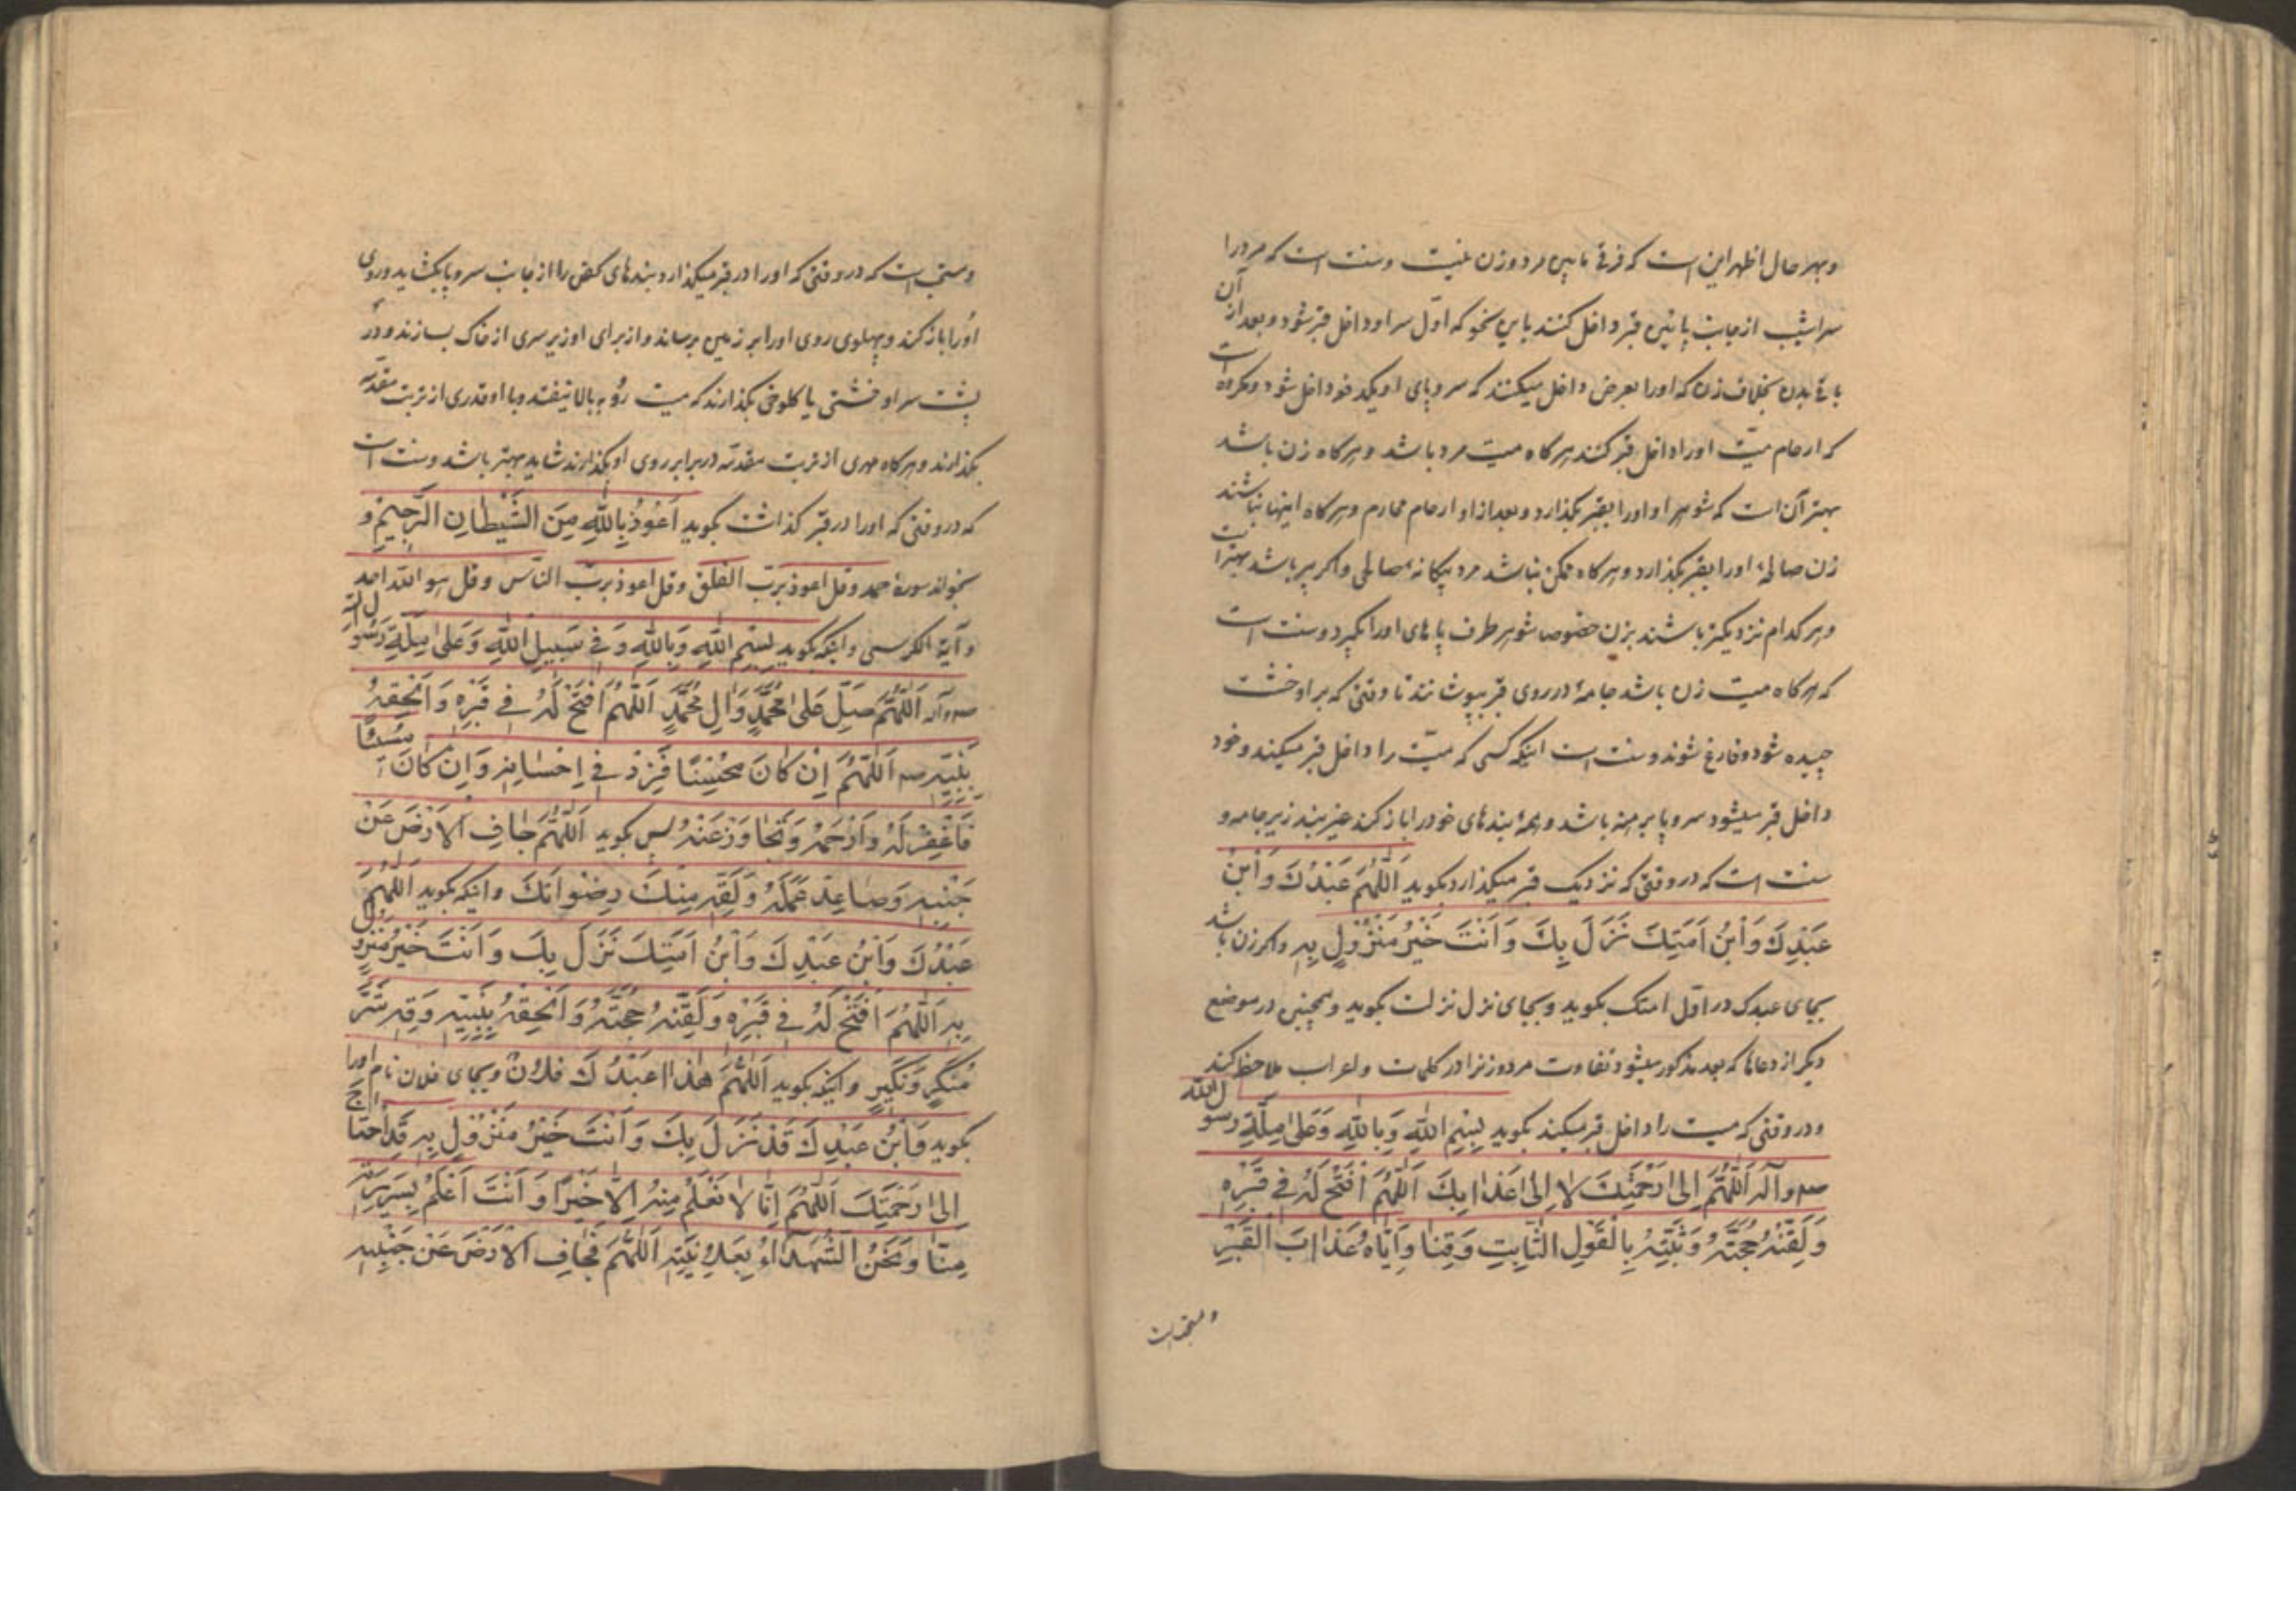 و بهر حال اظهر این است که فرقی مابین مرد و زن نیست و سنت است که مرد را
سراشیب از جانب پائین قبر داخل کنند باین نحو که اول سر او داخل قبر شود و بعد از آن
باقی بدن بخلاف زن که او را بعرض داخل میکنند که سر و پای او یکدفعه داخل شود و مکروه است
که ارحام میت او را داخل قبر کنند هرگاه میت مرد باشد و هرگاه زن باشد
بهتر آن است که شوهر او او را بقبر بگذارد و بعد از او ارحام محارم و هرگاه اینها نباشند
زن صالحهٔ او را بقبر بگذارد و هرگاه ممکن نباشد مرد بیگانهٔ صالحی و اگر پیر باشد بهتر است
و هر کدام نزدیکتر باشند بزن خصوصا شوهر طرف پاهای او را بگیرد و سنت است
که هرگاه میت زن باشد جامهٔ در روی قبر بپوشانند تا وقتی که بر او خشت
چیده شود و فارغ شوند و سنت است اینکه کسی که میت را داخل قبر میکند و خود
داخل قبر میشود سر و پا برهنه باشد و همهٔ بندهای خود را باز کند غیر بند زیر جامه و
سنت است که در وقتی که نزدیک قبر میگذارد بگوید اَللّٰهُمَّ عَبْدُكَ وَابْنُ
عَبْدِكَ وَابْنُ اَمَتِكَ نَزَلَ بِكَ وَاَنْتَ خَيْرُ مَنْزُولٍ بِهِ و اگر زن باشد
بجای عبدک در اول امتک بگوید و بجای نزل نزلت بگوید و همچنین در موضع
دیگر از دعاها که بعد مذکور میشود تفاوت مرد و زنرا در کلمات و اعراب ملاحظه کنند
و در وقتی که میت را داخل قبر میکند بگوید بِسْمِ اللّٰهِ وَبِاللّٰهِ وَعَلىٰ مِلَّةِ رَسُولِ اللّٰهِ
صم وآله اَللّٰهُمَّ اِلىٰ رَحْمَتِكَ لا اِلىٰ عَذابِكَ اَللّٰهُمَّ افْتَحْ لَهُ في قَبْرِهِ
وَلَقِّنْهُ حُجَّتَهُ وَثَبِّتْهُ بِالْقَوْلِ الثّابِتِ وَقِنا وَاِيّاهُ عَذابَ الْقَبْرِ
و مستحب است
و مستحب است که در وقتی که او را در قبر میگذارد بندهای کفن را از جانب سر و پا بگشاید و روی
او را باز کند و پهلوی روی او را بر زمین برساند و از برای او زیر سری از خاک بسازند و در
پشت سر او خشتی یا کلوخی بگذارند که میت رو به بالا نیفتد و با او قدری از تربت مقدسه
بگذارند و هرگاه مهری از تربت مقدسه در برابر روی او بگذارند شاید بهتر باشد و سنت است
که در وقتی که او را در قبر گذاشت بگوید اَعُوذُ بِاللّٰهِ مِنَ الشَّيْطانِ الرَّجيمِ و
بخواند سورهٔ حمد و قل اعوذ برب الفلق و قل اعوذ برب الناس و قل هو الله احد
و آیة الکرسی و اینکه بگوید بِسْمِ اللّٰهِ وَبِاللّٰهِ وَفي سَبيلِ اللّٰهِ وَعَلىٰ مِلَّةِ رَسُولِ اللّٰهِ
صم وآله اَللّٰهُمَّ صَلِّ عَلىٰ مُحَمَّدٍ وَآلِ مُحَمَّدٍ اَللّٰهُمَّ افْتَحْ لَهُ في قَبْرِهِ وَاَلْحِقْهُ
بِنَبِيِّهِ صم اَللّٰهُمَّ اِنْ كانَ مُحْسِنًا فَزِدْ في اِحْسانِهِ وَاِنْ كانَ مُسيئًا
فَاغْفِرْ لَهُ وَارْحَمْهُ وَتَجاوَزْ عَنْهُ پس بگوید اَللّٰهُمَّ جافِ الْاَرْضَ عَنْ
جَنْبَيْهِ وَصاعِدْ عَمَلَهُ وَلَقِّهِ مِنْكَ رِضْوانَكَ و اینکه بگوید اَللّٰهُمَّ
عَبْدُكَ وَابْنُ عَبْدِكَ وَابْنُ اَمَتِكَ نَزَلَ بِكَ وَاَنْتَ خَيْرُ مَنْزُولٍ
بِهِ اَللّٰهُمَّ افْتَحْ لَهُ في قَبْرِهِ وَلَقِّنْهُ حُجَّتَهُ وَاَلْحِقْهُ بِنَبِيِّهِ وَقِهِ شَرَّ
مُنْكَرٍ وَنَكيرٍ و اینکه بگوید اَللّٰهُمَّ هٰذا عَبْدُكَ فُلانٌ و بجای فلان نام او را
بگوید وَابْنُ عَبْدِكَ قَدْ نَزَلَ بِكَ وَاَنْتَ خَيْرُ مَنْزُولٍ بِهِ قَدِ احْتاجَ
اِلىٰ رَحْمَتِكَ اَللّٰهُمَّ اِنّا لا نَعْلَمُ مِنْهُ اِلّا خَيْرًا وَاَنْتَ اَعْلَمُ بِسَريرَتِهِ
مِنّا وَنَحْنُ الشُّهَداءُ بِعَلانِيَتِهِ اَللّٰهُمَّ فَجافِ الْاَرْضَ عَنْ جَنْبَيْهِ